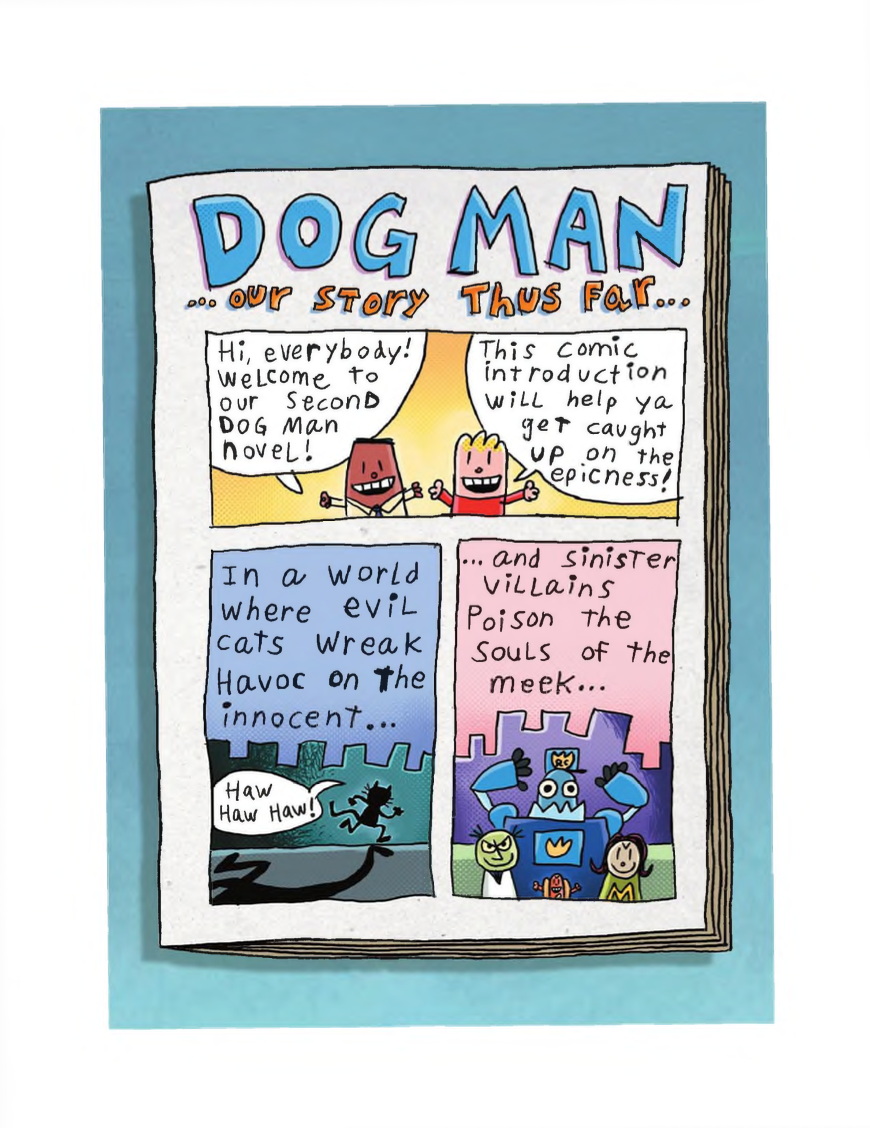 DOG MAN
... our STORY Thus Far...
Hi, everybody!
WeLcome to
our SeconD
DOG Man
novel!
This comic
introduction
wiLL help ya
geT caught
UP on the
epicness!
In a worLd
where eviL
cats wreak
Havoc on The
innocent...
Haw
Haw Haw!
...and sinisTer
ViLLains
Poison the
SouLs of the
meek...
M